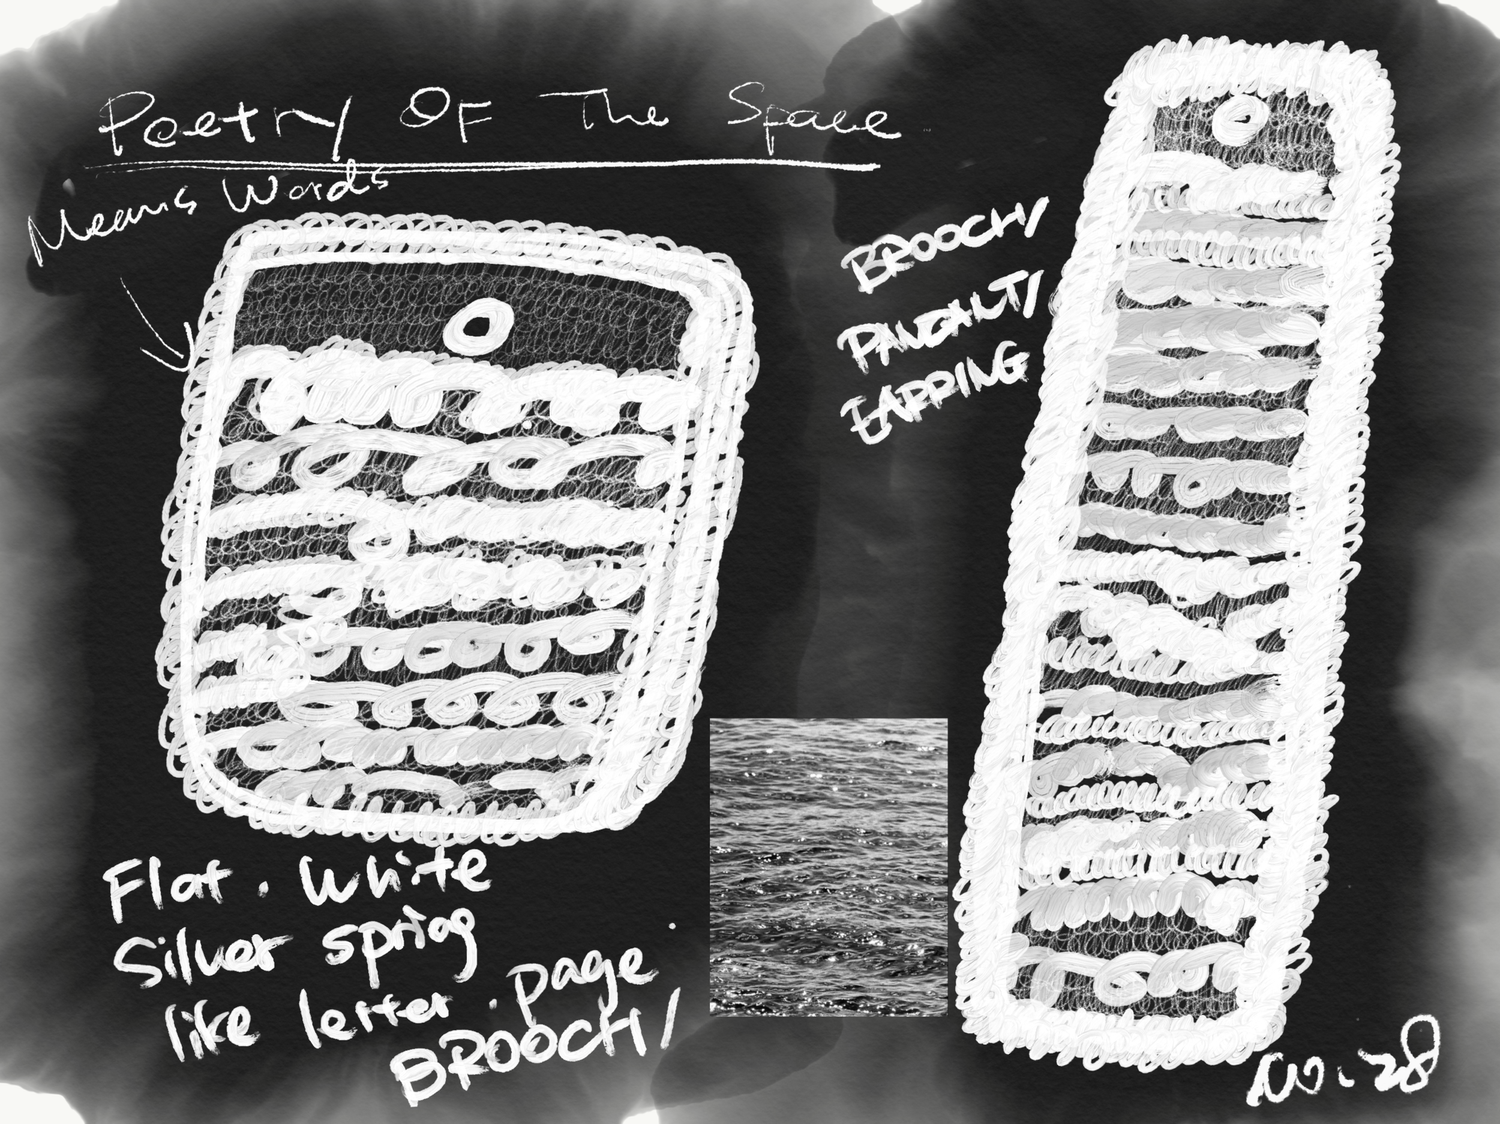 Poetry OF The Space
Means Words
BROOCH/
PANDANT/
EARRING
Flat. White
Silver spring
like letter. page
BROOCH/
No. 28